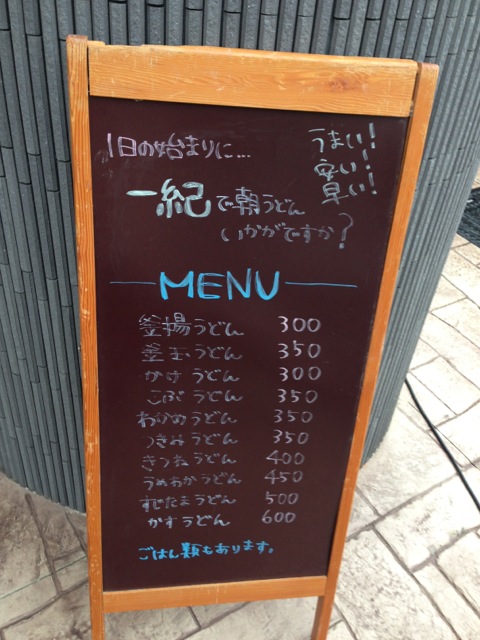 1日の始まりに...
うまい!
安い!
早い!
一紀で朝うどん
いかがですか?
MENU
釜揚うどん 300
釜玉うどん 350
かけうどん 300
こぶうどん 350
わかめうどん 350
つきみうどん 350
きつねうどん 400
うめわかうどん 450
すじたまうどん 500
かすうどん 600
ごはん類もあります。